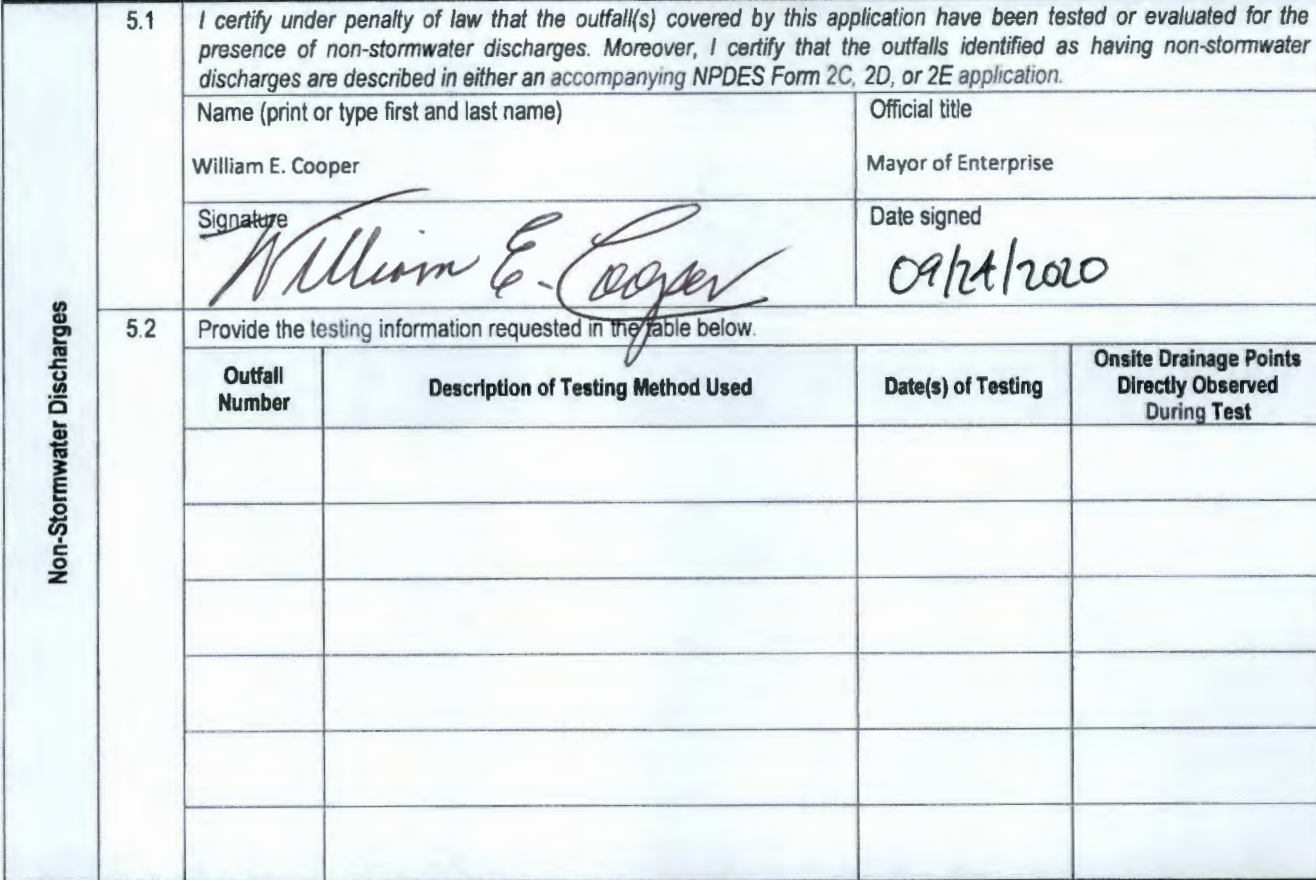 5.1 I certify under penalty of law that the outfall(s) covered by this application have been tested or evaluated for the
presence of non-stormwater discharges. Moreover, I certify that the outfalls identified as having non-stormwater
discharges are described in either an accompanying NPDES Form 2C, 2D, or 2E application.
Name (print or type first and last name) Official title
William E. Cooper Mayor of Enterprise
Signature Date signed
William E. Cooper 09/24/2020
Non-Stormwater Discharges
5.2 Provide the testing information requested in the table below.
Outfall
Number
Description of Testing Method Used
Date(s) of Testing
Onsite Drainage Points
Directly Observed
During Test